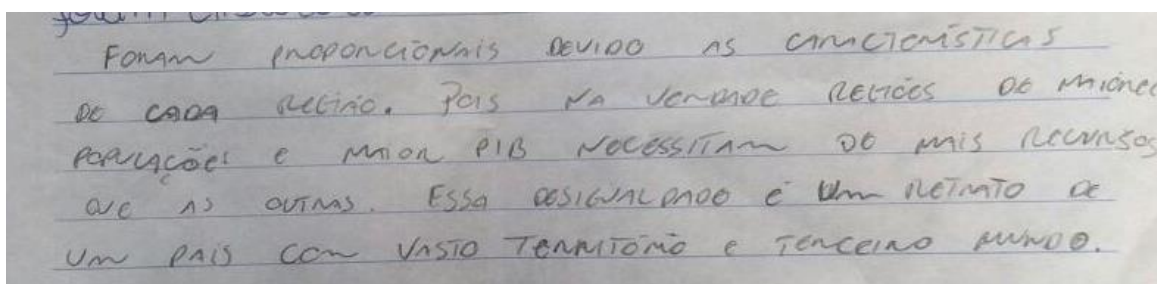 Foram proporcionais devido as características
de cada região. Pois na verdade regiões de maiores
populações e maior PIB necessitam de mais recursos
que as outras. Essa desigualdade é um retrato de
um país com vasto território e terceiro mundo.